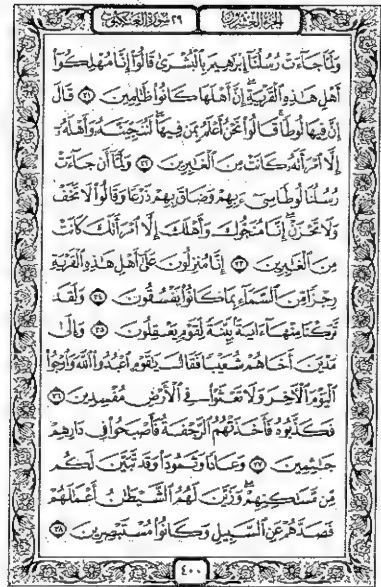 الجزء العشرون ٢٩ سورة العنكبوت
وَلَمَّا جَاءَتْ رُسُلُنَا إِبْرَٰهِيمَ بِٱلْبُشْرَىٰ قَالُوٓا۟ إِنَّا مُهْلِكُوٓا۟
أَهْلِ هَٰذِهِ ٱلْقَرْيَةِ إِنَّ أَهْلَهَا كَانُوا۟ ظَٰلِمِينَ ٣١ قَالَ
إِنَّ فِيهَا لُوطًا قَالُوا۟ نَحْنُ أَعْلَمُ بِمَن فِيهَا لَنُنَجِّيَنَّهُۥ وَأَهْلَهُۥٓ
إِلَّا ٱمْرَأَتَهُۥ كَانَتْ مِنَ ٱلْغَٰبِرِينَ ٣٢ وَلَمَّآ أَن جَآءَتْ
رُسُلُنَا لُوطًا سِىٓءَ بِهِمْ وَضَاقَ بِهِمْ ذَرْعًا وَقَالُوا۟ لَا تَخَفْ
وَلَا تَحْزَنْ إِنَّا مُنَجُّوكَ وَأَهْلَكَ إِلَّا ٱمْرَأَتَكَ كَانَتْ
مِنَ ٱلْغَٰبِرِينَ ٣٣ إِنَّا مُنزِلُونَ عَلَىٰٓ أَهْلِ هَٰذِهِ ٱلْقَرْيَةِ
رِجْزًا مِّنَ ٱلسَّمَآءِ بِمَا كَانُوا۟ يَفْسُقُونَ ٣٤ وَلَقَد
تَّرَكْنَا مِنْهَآ ءَايَةًۢ بَيِّنَةً لِّقَوْمٍ يَعْقِلُونَ ٣٥ وَإِلَىٰ
مَدْيَنَ أَخَاهُمْ شُعَيْبًا فَقَالَ يَٰقَوْمِ ٱعْبُدُوا۟ ٱللَّهَ وَٱرْجُوا۟
ٱلْيَوْمَ ٱلْءَاخِرَ وَلَا تَعْثَوْا۟ فِى ٱلْأَرْضِ مُفْسِدِينَ ٣٦
فَكَذَّبُوهُ فَأَخَذَتْهُمُ ٱلرَّجْفَةُ فَأَصْبَحُوا۟ فِى دَارِهِمْ
جَٰثِمِينَ ٣٧ وَعَادًا وَثَمُودَا۟ وَقَد تَّبَيَّنَ لَكُم
مِّن مَّسَٰكِنِهِمْ وَزَيَّنَ لَهُمُ ٱلشَّيْطَٰنُ أَعْمَٰلَهُمْ
فَصَدَّهُمْ عَنِ ٱلسَّبِيلِ وَكَانُوا۟ مُسْتَبْصِرِينَ ٣٨
٤٠٠